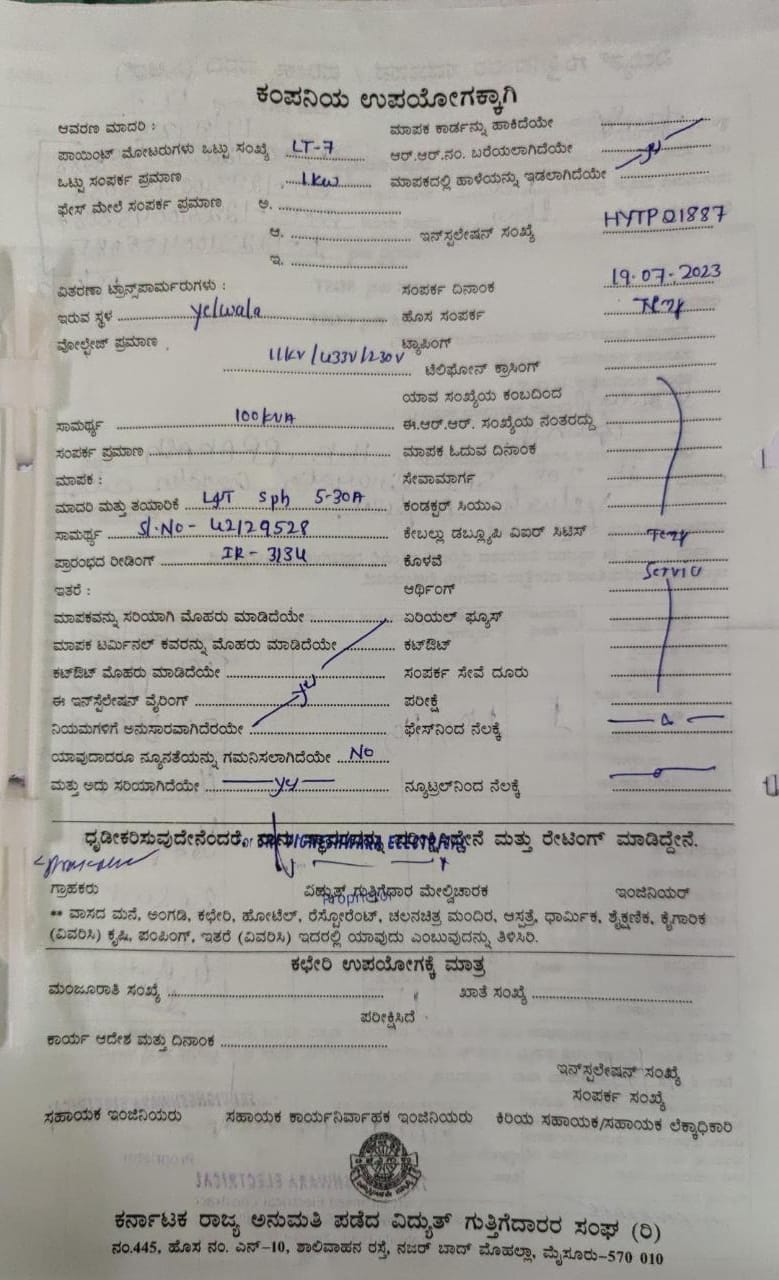 ಕಂಪನಿಯ ಉಪಯೋಗಕ್ಕಾಗಿ
ಆವರಣ ಮಾದರಿ : ಮಾಪಕ ಕಾರ್ಡನ್ನು ಹಾಕಿದೆಯೇ
ಪಾಯಿಂಟ್ ಮೋಟರುಗಳು ಒಟ್ಟು ಸಂಖ್ಯೆ LT-7 ಆರ್.ಆರ್.ನಂ. ಬರೆಯಲಾಗಿದೆಯೇ
ಒಟ್ಟು ಸಂಪರ್ಕ ಪ್ರಮಾಣ 1kw ಮಾಪಕದಲ್ಲಿ ಹಾಳೆಯನ್ನು ಇಡಲಾಗಿದೆಯೇ
ಫೇಸ್ ಮೇಲೆ ಸಂಪರ್ಕ ಪ್ರಮಾಣ ಅ.
ಆ. ಇನ್‌ಸ್ಟಲೇಷನ್ ಸಂಖ್ಯೆ HYTP01887
ಇ.
ವಿತರಣಾ ಟ್ರಾನ್ಸ್‌ಫಾರ್ಮರುಗಳು : ಸಂಪರ್ಕ ದಿನಾಂಕ 19.07.2023
ಇರುವ ಸ್ಥಳ yelwala ಹೊಸ ಸಂಪರ್ಕ Temy
ವೋಲ್ಟೇಜ್ ಪ್ರಮಾಣ 11kV/433V/230V ಟ್ಯಾಪಿಂಗ್
ಟೆಲಿಫೋನ್ ಕ್ರಾಸಿಂಗ್
ಯಾವ ಸಂಖ್ಯೆಯ ಕಂಬದಿಂದ
ಸಾಮರ್ಥ್ಯ 100kVA ಈ.ಆರ್.ಆರ್. ಸಂಖ್ಯೆಯ ನಂತರದ್ದು
ಸಂಪರ್ಕ ಪ್ರಮಾಣ ಮಾಪಕ ಓದುವ ದಿನಾಂಕ
ಮಾಪಕ : ಸೇವಾಮಾರ್ಗ
ಮಾದರಿ ಮತ್ತು ತಯಾರಿಕೆ L&T Sph 5-30A ಕಂಡಕ್ಟರ್ ಸಿಯುಎ
ಸಾಮರ್ಥ್ಯ Sl.No- 42129528 ಕೇಬಲ್ಲು ಡಬ್ಲ್ಯೂಪಿ ವಿಐರ್ ಸಿಟಿಸ್ Temy
ಪ್ರಾರಂಭದ ರೀಡಿಂಗ್ IR- 3134 ಕೊಳವೆ Service
ಇತರೆ : ಆರ್ಥಿಂಗ್
ಮಾಪಕವನ್ನು ಸರಿಯಾಗಿ ಮೊಹರು ಮಾಡಿದೆಯೇ ಏರಿಯಲ್ ಫ್ಯೂಸ್
ಮಾಪಕ ಟರ್ಮಿನಲ್ ಕವರನ್ನು ಮೊಹರು ಮಾಡಿದೆಯೇ ಕಟ್‌ಔಟ್
ಕಟ್‌ಔಟ್ ಮೊಹರು ಮಾಡಿದೆಯೇ ಸಂಪರ್ಕ ಸೇವೆ ದೂರು
ಈ ಇನ್‌ಸ್ಟಲೇಷನ್ ವೈರಿಂಗ್ ಪರೀಕ್ಷೆ
ನಿಯಮಗಳಿಗೆ ಅನುಸಾರವಾಗಿದೆರಯೇ ಫೇಸ್‌ನಿಂದ ನೆಲಕ್ಕೆ
ಯಾವುದಾದರೂ ನ್ಯೂನತೆಯನ್ನು ಗಮನಿಸಲಾಗಿದೆಯೇ No
ಮತ್ತು ಅದು ಸರಿಯಾಗಿದೆಯೇ ನ್ಯೂಟ್ರಲ್‌ನಿಂದ ನೆಲಕ್ಕೆ
ಧೃಡೀಕರಿಸುವುದೇನೆಂದರೆ, ನಾನು ಸ್ಥಾವರವನ್ನು ಪರೀಕ್ಷಿಸಿದ್ದೇನೆ ಮತ್ತು ರೇಟಿಂಗ್ ಮಾಡಿದ್ದೇನೆ.
ಗ್ರಾಹಕರು ವಿದ್ಯುತ್ ಗುತ್ತಿಗೆದಾರ ಮೇಲ್ವಿಚಾರಕ ಇಂಜಿನಿಯರ್
Proprietor
** ವಾಸದ ಮನೆ, ಅಂಗಡಿ, ಕಛೇರಿ, ಹೋಟೆಲ್, ರೆಸ್ಟೋರೆಂಟ್, ಚಲನಚಿತ್ರ ಮಂದಿರ, ಆಸ್ಪತ್ರೆ, ಧಾರ್ಮಿಕ, ಶೈಕ್ಷಣಿಕ, ಕೈಗಾರಿಕ
(ವಿವರಿಸಿ) ಕೃಷಿ, ಪಂಪಿಂಗ್, ಇತರೆ (ವಿವರಿಸಿ) ಇದರಲ್ಲಿ ಯಾವುದು ಎಂಬುವುದನ್ನು ತಿಳಿಸಿರಿ.
ಕಛೇರಿ ಉಪಯೋಗಕ್ಕೆ ಮಾತ್ರ
ಮಂಜೂರಾತಿ ಸಂಖ್ಯೆ ಖಾತೆ ಸಂಖ್ಯೆ
ಪರೀಕ್ಷಿಸಿದೆ
ಕಾರ್ಯ ಆದೇಶ ಮತ್ತು ದಿನಾಂಕ
ಇನ್‌ಸ್ಟಲೇಷನ್ ಸಂಖ್ಯೆ
ಸಂಪರ್ಕ ಸಂಖ್ಯೆ
ಸಹಾಯಕ ಇಂಜಿನಿಯರು ಸಹಾಯಕ ಕಾರ್ಯನಿರ್ವಾಹಕ ಇಂಜಿನಿಯರು ಕಿರಿಯ ಸಹಾಯಕ/ಸಹಾಯಕ ಲೆಕ್ಕಾಧಿಕಾರಿ
ಕರ್ನಾಟಕ ರಾಜ್ಯ ಅನುಮತಿ ಪಡೆದ ವಿದ್ಯುತ್ ಗುತ್ತಿಗೆದಾರರ ಸಂಘ (ರಿ)
ನಂ.445, ಹೊಸ ನಂ. ಎನ್-10, ಶಾಲಿವಾಹನ ರಸ್ತೆ, ನಜರ್ ಬಾದ್ ಮೊಹಲ್ಲಾ, ಮೈಸೂರು-570 010